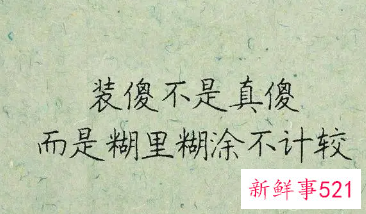 装傻不是真傻
而是糊里糊涂不计较
新鲜事521